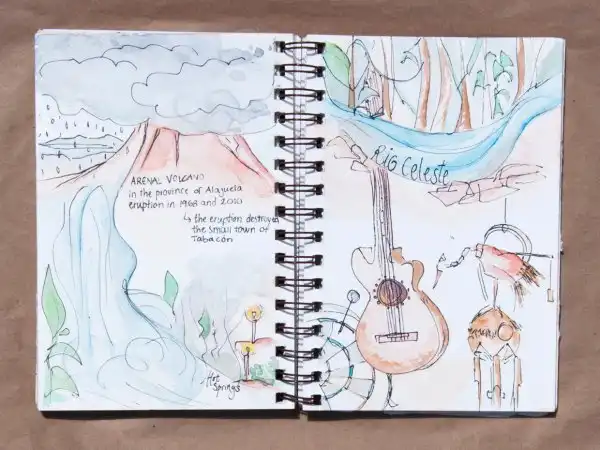 ARENAL VOLCANO
in the province of Alajuela
eruption in 1968 and 2010
↳ the eruption destroyed
the small town of
Tabacon
Hot
Springs
Rio Celeste